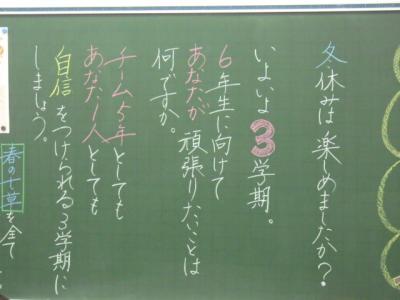 冬休みは楽しめましたか？
いよいよ3学期。
6年生に向けて
あなたが頑張りたいことは
何ですか。
チーム5年としても
あなた1人としても
自信をつけられる3学期に
しましょう。
春の七草を全て